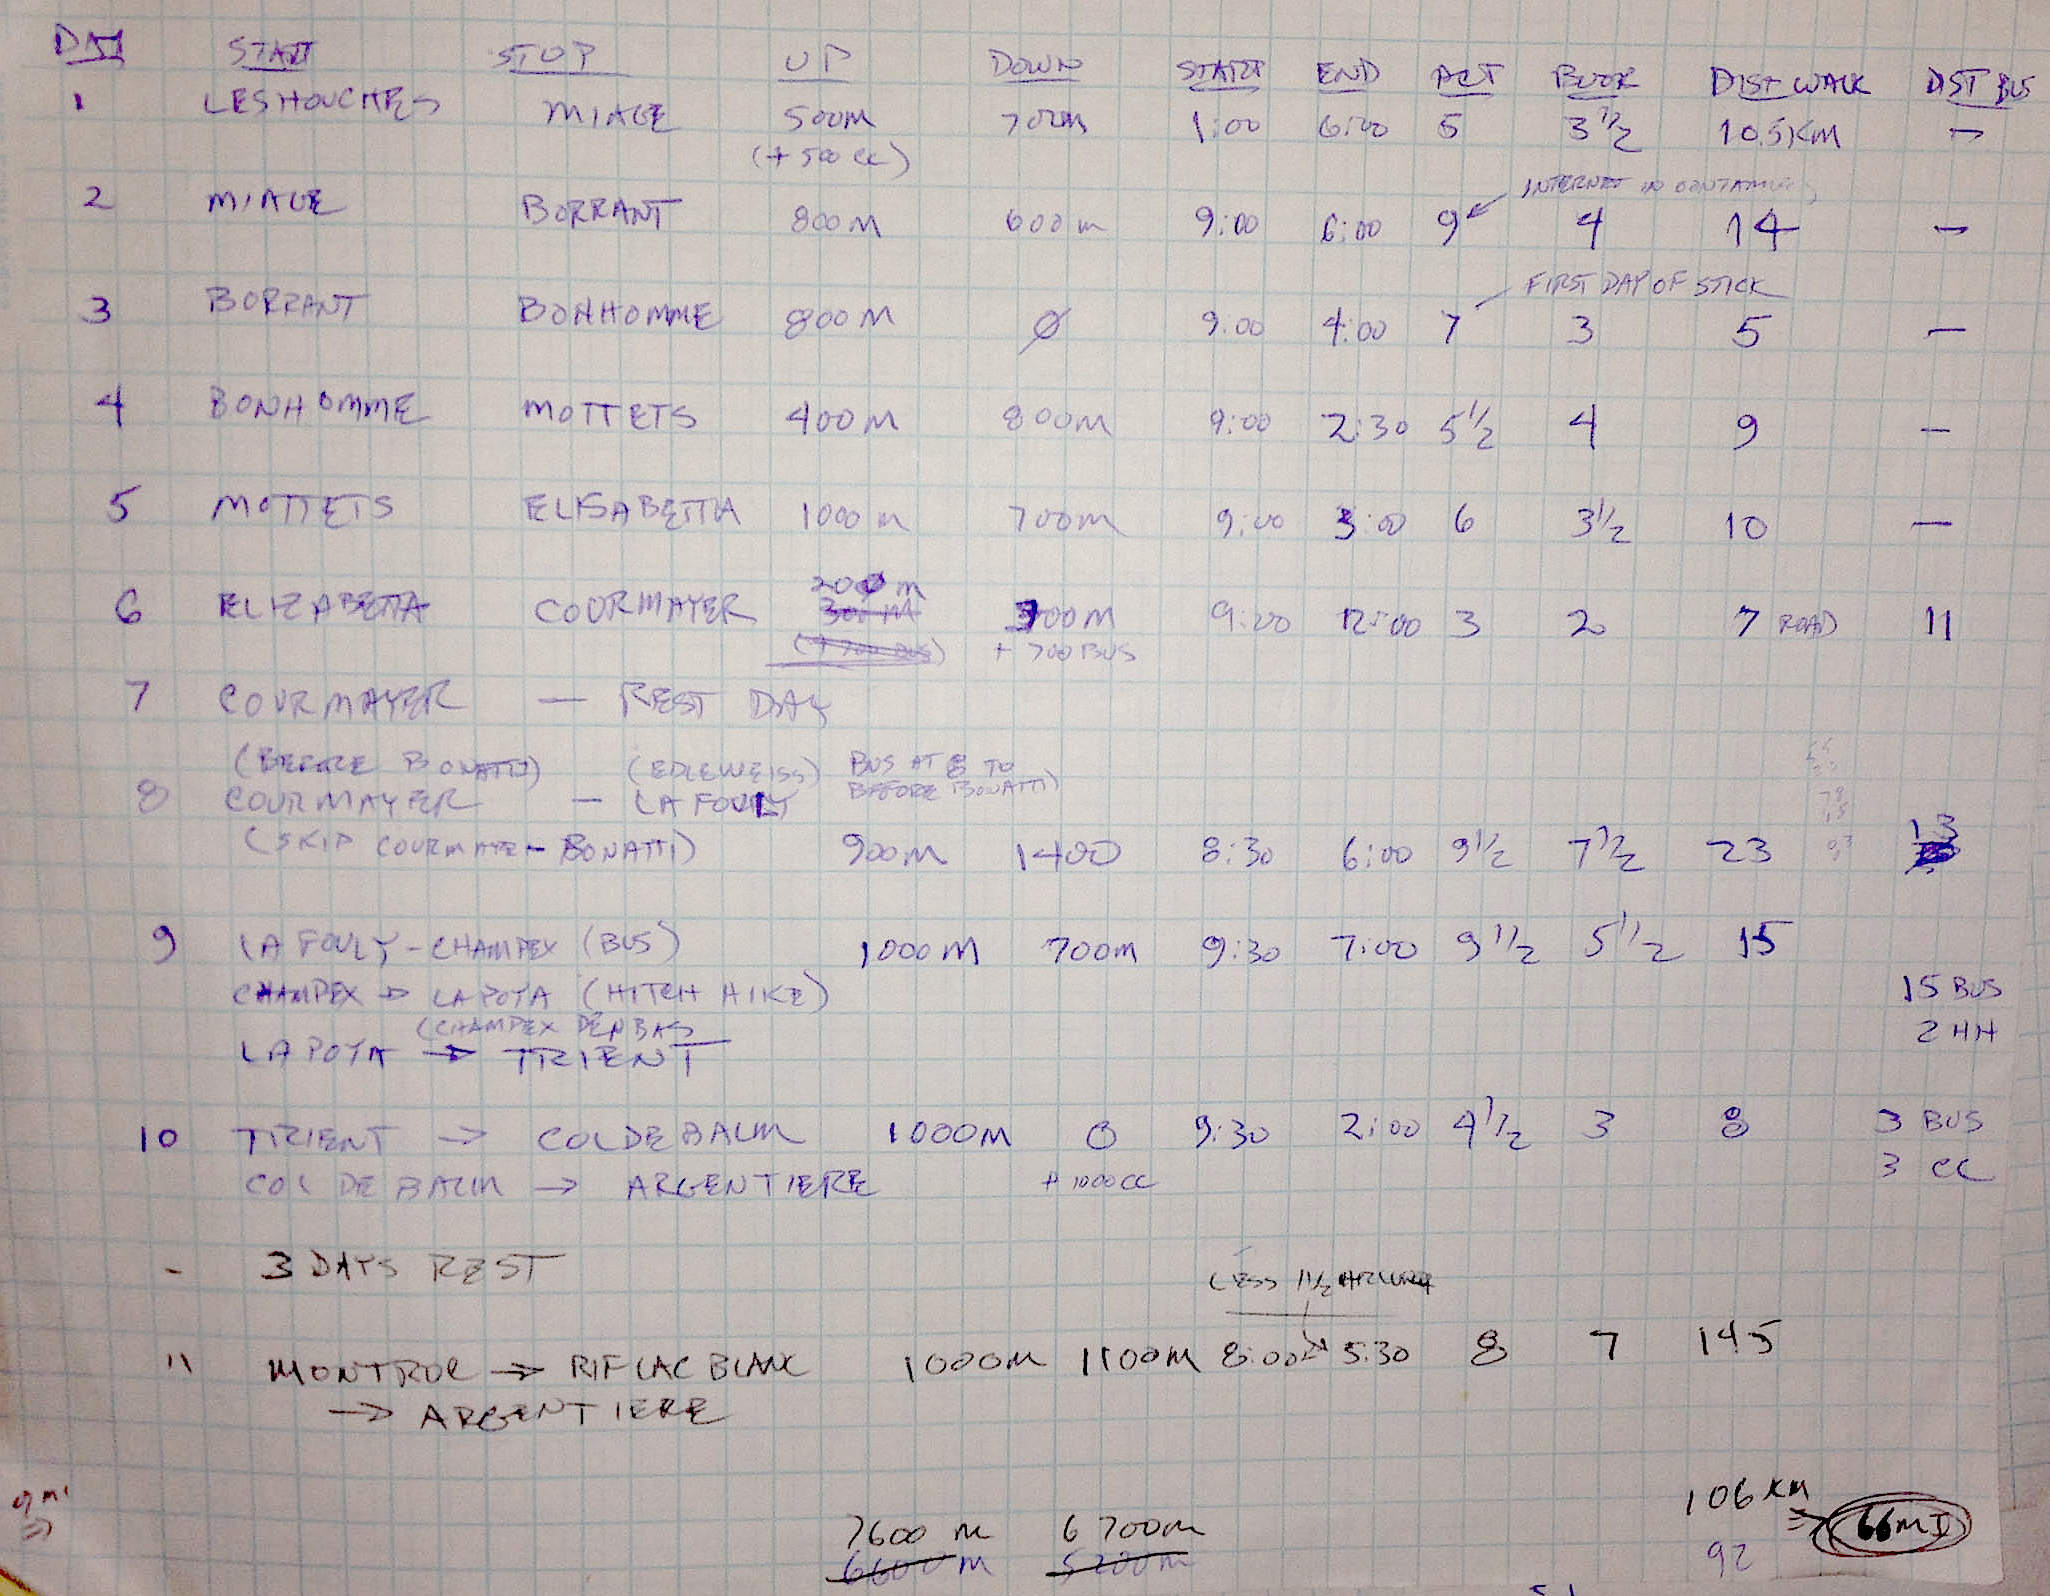 DAY START STOP UP DOWN START END ACT BOOK DIST WALK DIST BUS
1 LES HOUCHES MIAGE 500M 700M 1:00 6:00 5 3 1/2 10.5KM —
(+ 500 CC)
INTERNET IN CONTAMINES
2 MIAGE BORRANT 800M 600m 9:00 6:00 9 4 14 —
FIRST DAY OF STICK
3 BORRANT BONHOMME 800M Ø 9:00 4:00 7 3 5 —
4 BONHOMME MOTTETS 400M 800M 9:00 2:30 5 1/2 4 9 —
5 MOTTETS ELISABETTA 1000m 700m 9:00 3:00 6 3 1/2 10 —
200 m
6 ELIZABETTA COURMAYER 300 M 300M 9:00 12:00 3 2 7 ROAD 11
(+ 700 BUS) + 700 BUS
7 COURMAYER — REST DAY
(BEFORE BONATTI) (EDLEWEISS) BUS AT 8 TO
8 COURMAYER — LA FOULY BEFORE BONATTI)
(SKIP COURMAYER - BONATTI) 900M 1400 8:30 6:00 9 1/2 7 1/2 23 13
9 LA FOULY - CHAMPEX (BUS) 1000M 700M 9:30 7:00 9 1/2 5 1/2 15
CHAMPEX → LA POYA (HITCH HIKE) 15 BUS
(CHAMPEX DEN BAS 2 HH
LA POYA → TRIENT
10 TRIENT → COL DE BALM 1000M 0 9:30 2:00 4 1/2 3 8 3 BUS
COL DE BALM → ARGENTIERE + 1000CC 3 CC
- 3 DAYS REST
LESS 1 1/2
11 MONTROC → RIF LAC BLANC 1000M 1100M 8:00 5:30 8 7 14.5
→ ARGENTIERE
9 mi
106 KM ⇒ 66 MI
7600 m 6700m
6600 m 5200 m 92